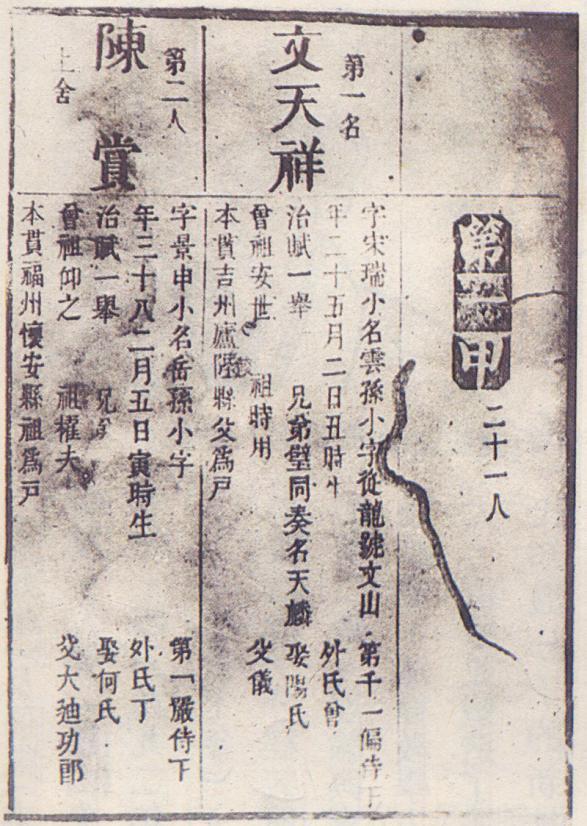 第一甲
二十一人
第一名
文天祥
字宋瑞小名雲孫小字從龍號文山 第千一偏侍下
年二十五月二日丑時生 外氏曾
治賦一舉 兄弟璧同奏名天麟 娶陽氏
曾祖安世 祖時用 父儀
本貫吉州廬陵縣父爲戶
第二人
陳賞
上舍
字景申小名岳孫小字 第一嚴侍下
年三十八二月五日寅時生 外氏丁
治賦一舉 兄 娶何氏
曾祖仰之 祖權夫 父大廸功郎
本貫福州懷安縣祖爲戶